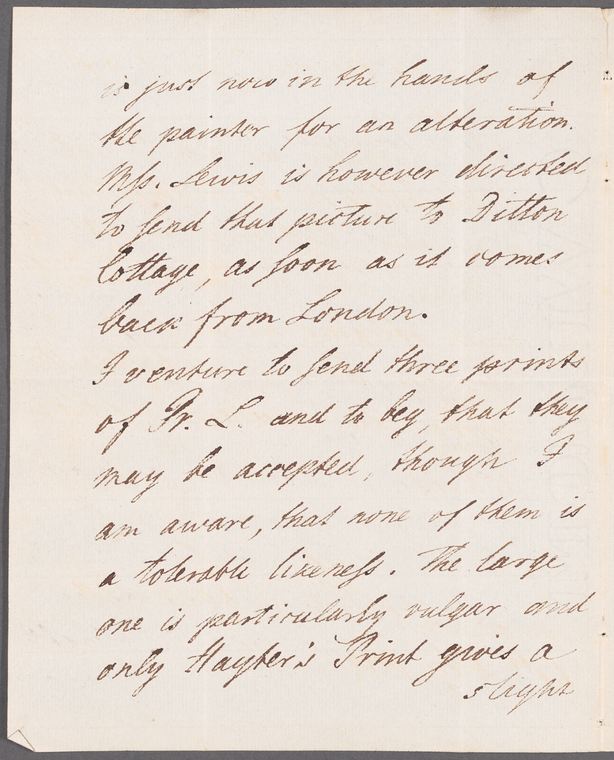 is just now in the hands of
the painter for an alteration.
Mſs. Lewis is however directed
to ſend that picture to Ditton
Cottage, as ſoon as it comes
back from London.
I venture to ſend three prints
of Pr. L. and to beg, that they
may be accepted, though I
am aware, that none of them is
a tolerable likeneſs. The large
one is particularly vulgar and
only Hayter's Print gives a
slight